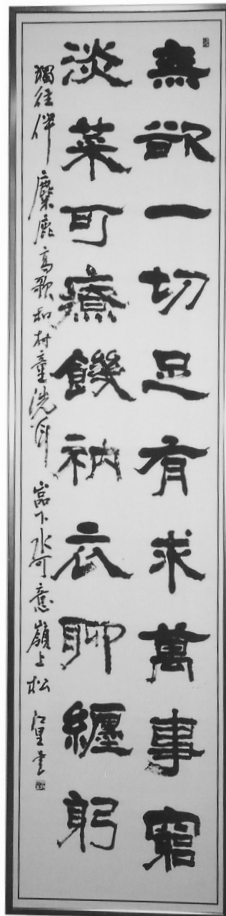 無欲一切足有求萬事窮
淡菜可療饑衲衣聊纏躬
獨往伴麋鹿高歌和村童洗耳嵓下水可意嶺上松